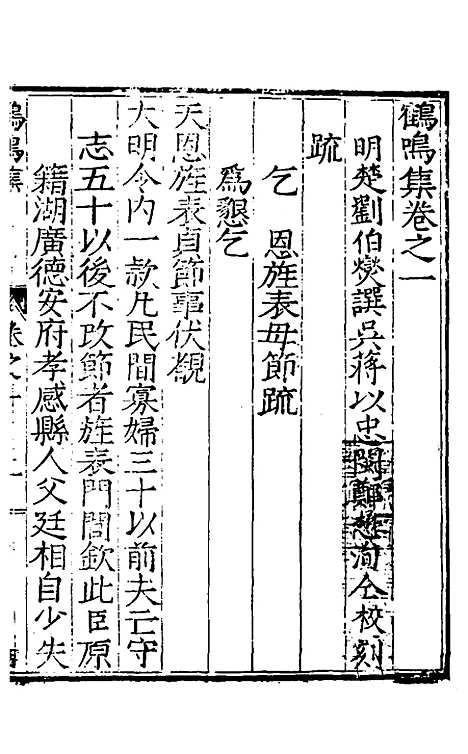 鶴鳴集卷之一
明楚劉伯燮譔吳蔣以忠閩鄭懋洵仝校刻
疏
乞　恩旌表母節疏
爲懇乞
天恩旌表貞節事伏覩
大明令內一款凡民間寡婦三十以前夫亡守
志五十以後不改節者旌表門閭欽此臣原
籍湖廣德安府孝感縣人父廷相自少失
鶴鳴集　卷之